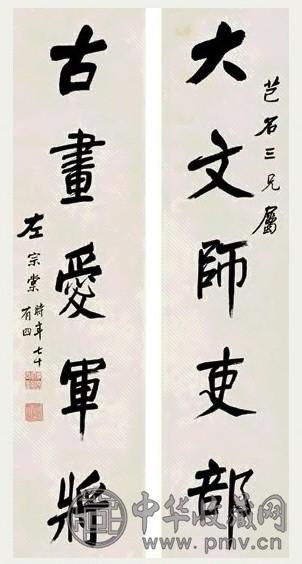 芑石三兄屬
大文師吏部
古畫愛軍將
左宗棠時年七十有四
中华收藏网
www.pmv.cn